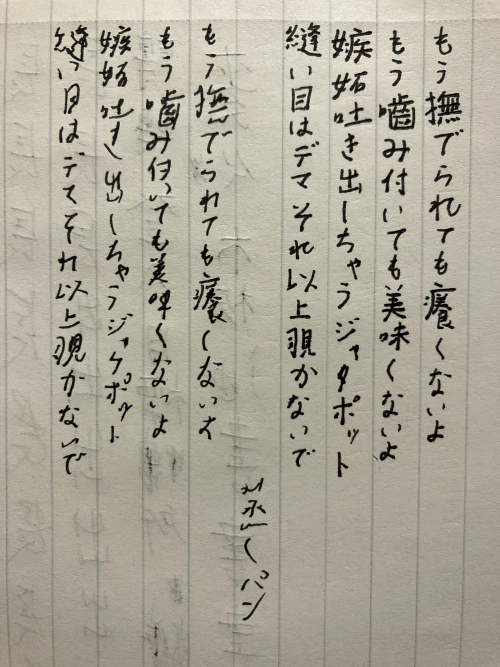 もう撫でられても癢くないよ
もう噛み付いても美味くないよ
嫉妬吐き出しちゃうジャクポット
縫い目はデマそれ以上覗かないで
しパン
もう撫でられても癢くないよ
もう噛み付いても美味くないよ
嫉妬吐き出しちゃうジャクポット
縫い目はデマそれ以上覗かないで